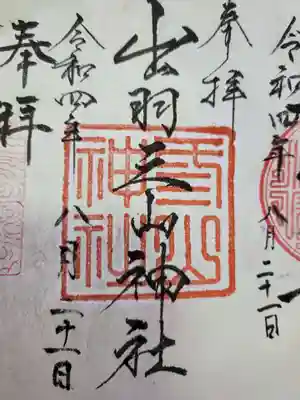 令和四年 八月二十一日
奉拝
出羽三山神社
令和四年 八月二十一日
奉拝